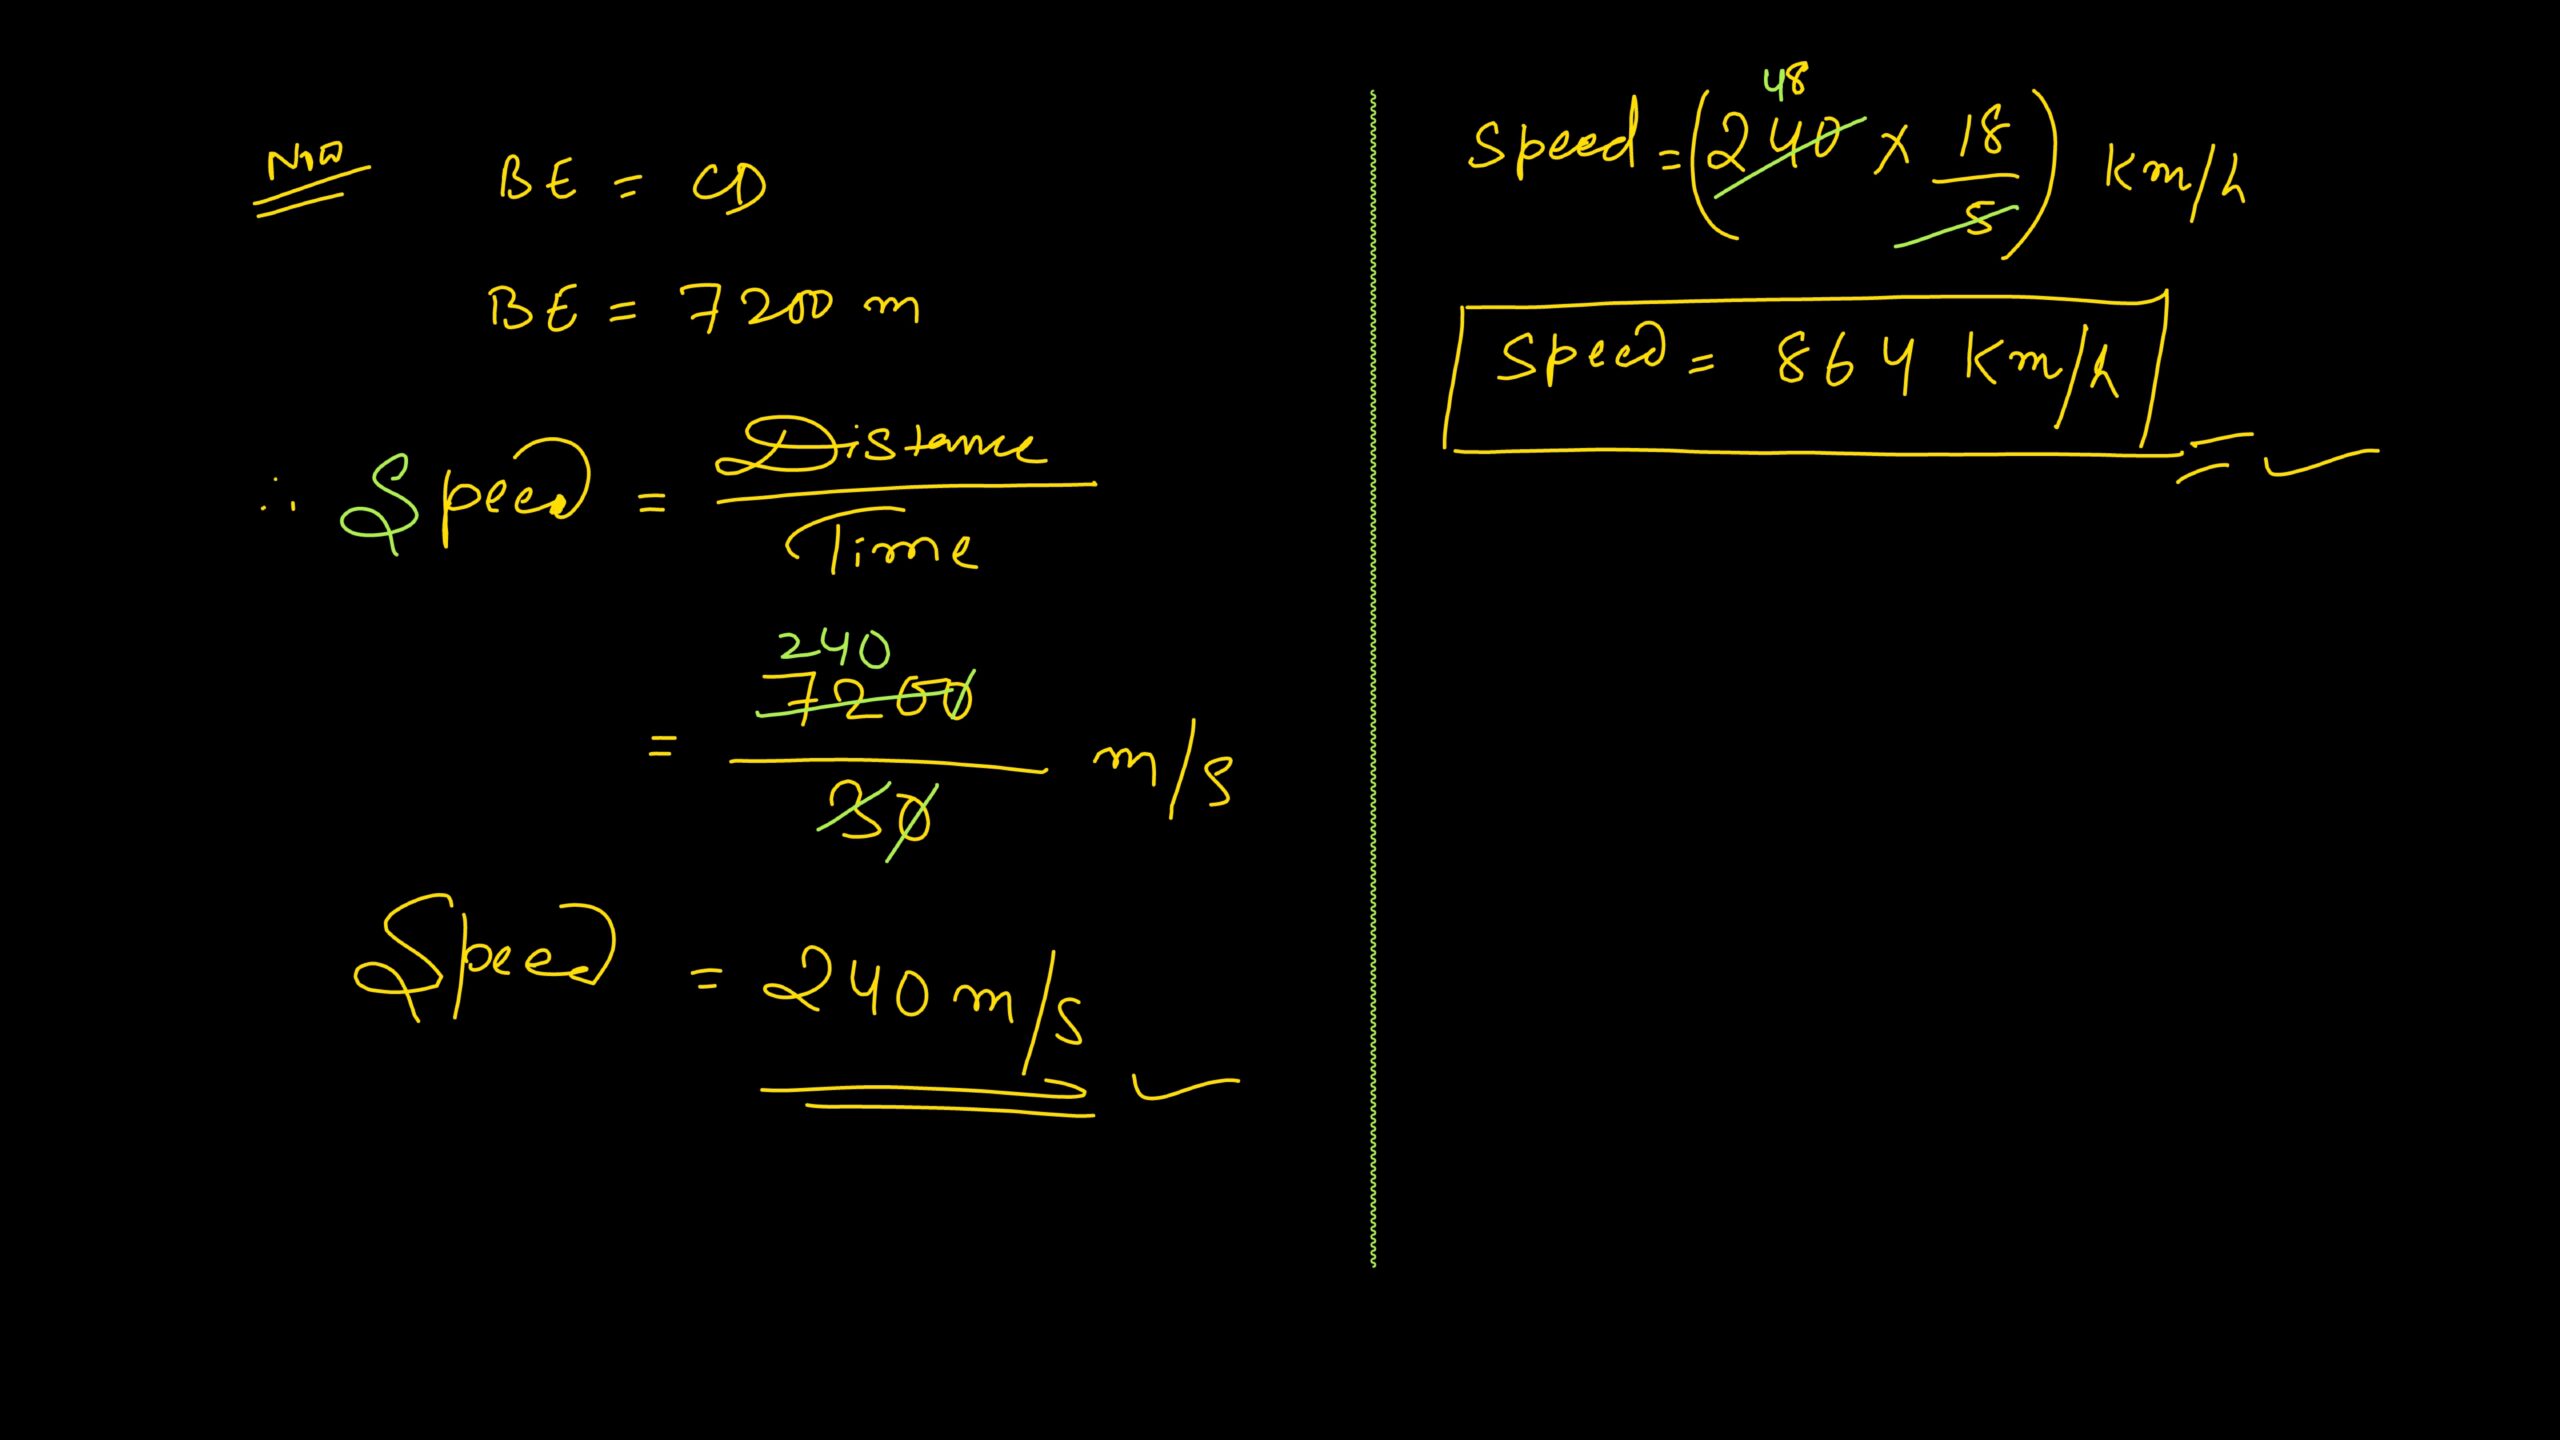 Now BE = CD
BE = 7200 m
∴ Speed = Distance / Time
240
= 7200 / 30 m/s
Speed = 240 m/s ✓
48
Speed = (240 × 18/5) Km/h
Speed = 864 Km/h ✓